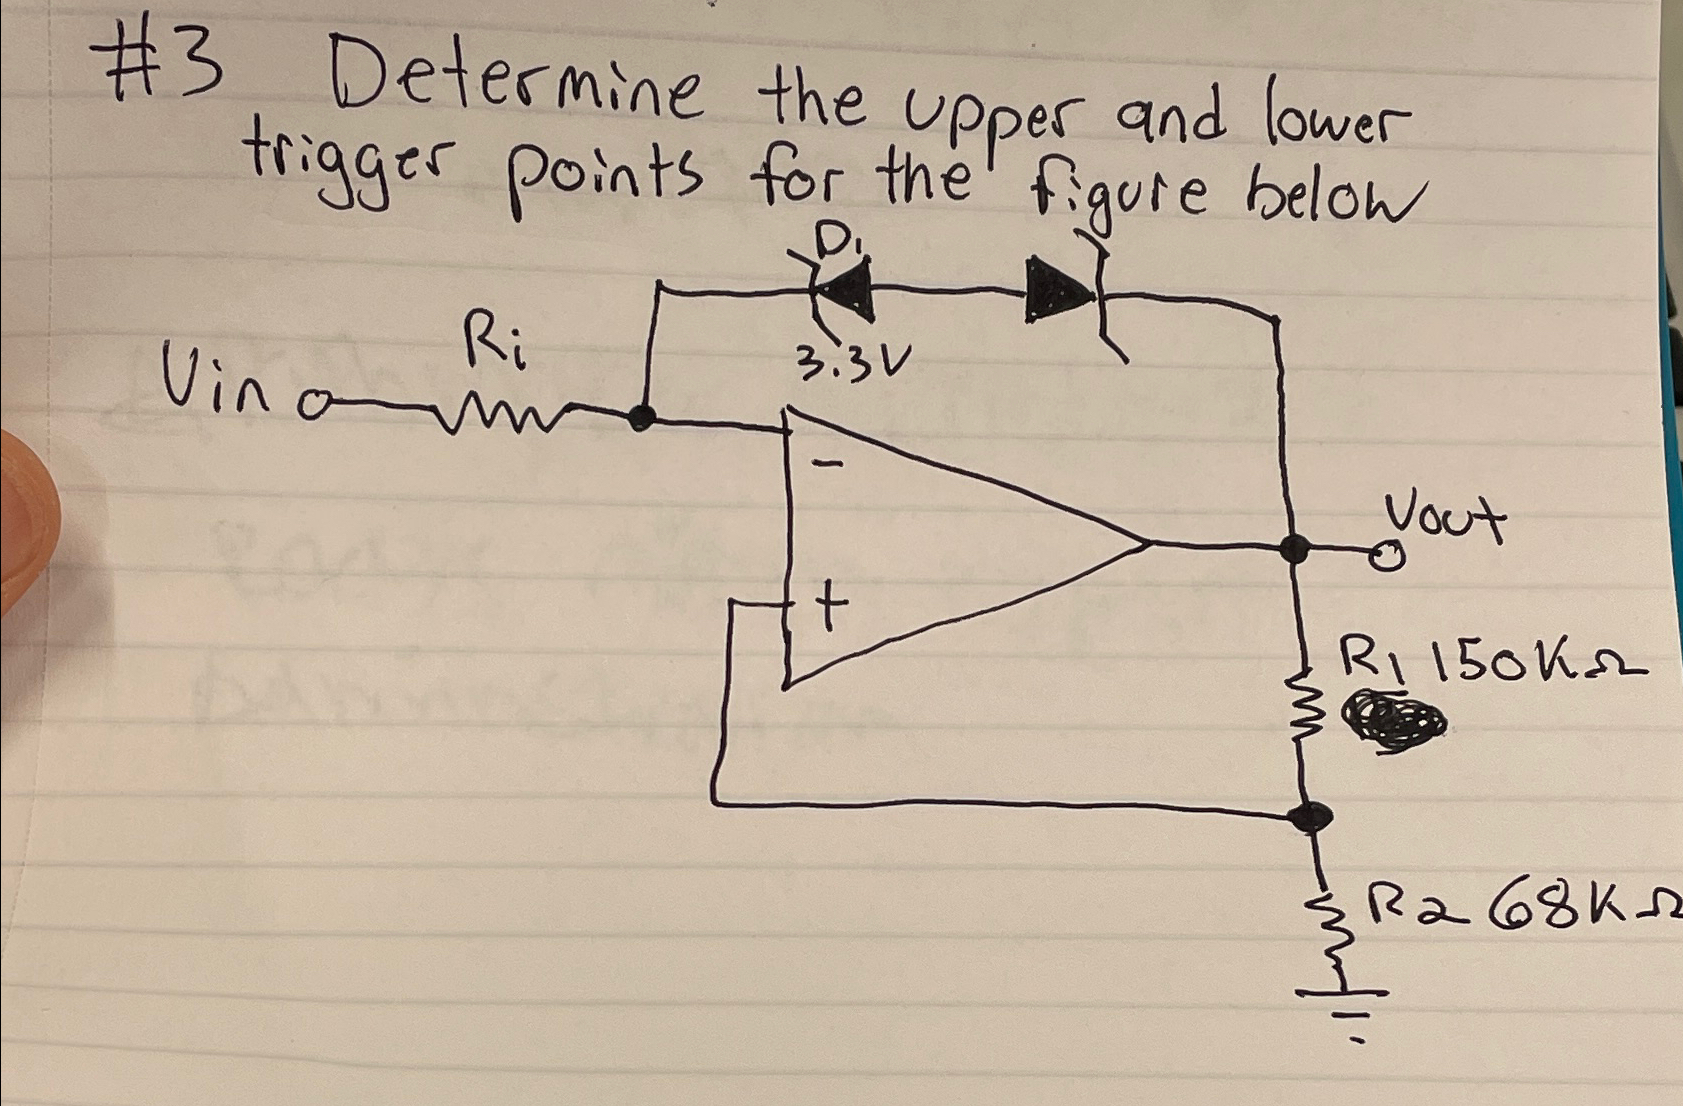 #3 Determine the upper and lower
trigger points for the figure below
D1
3.3V
Ri
Vin
-
+
Vout
R1 150KΩ
R2 68KΩ